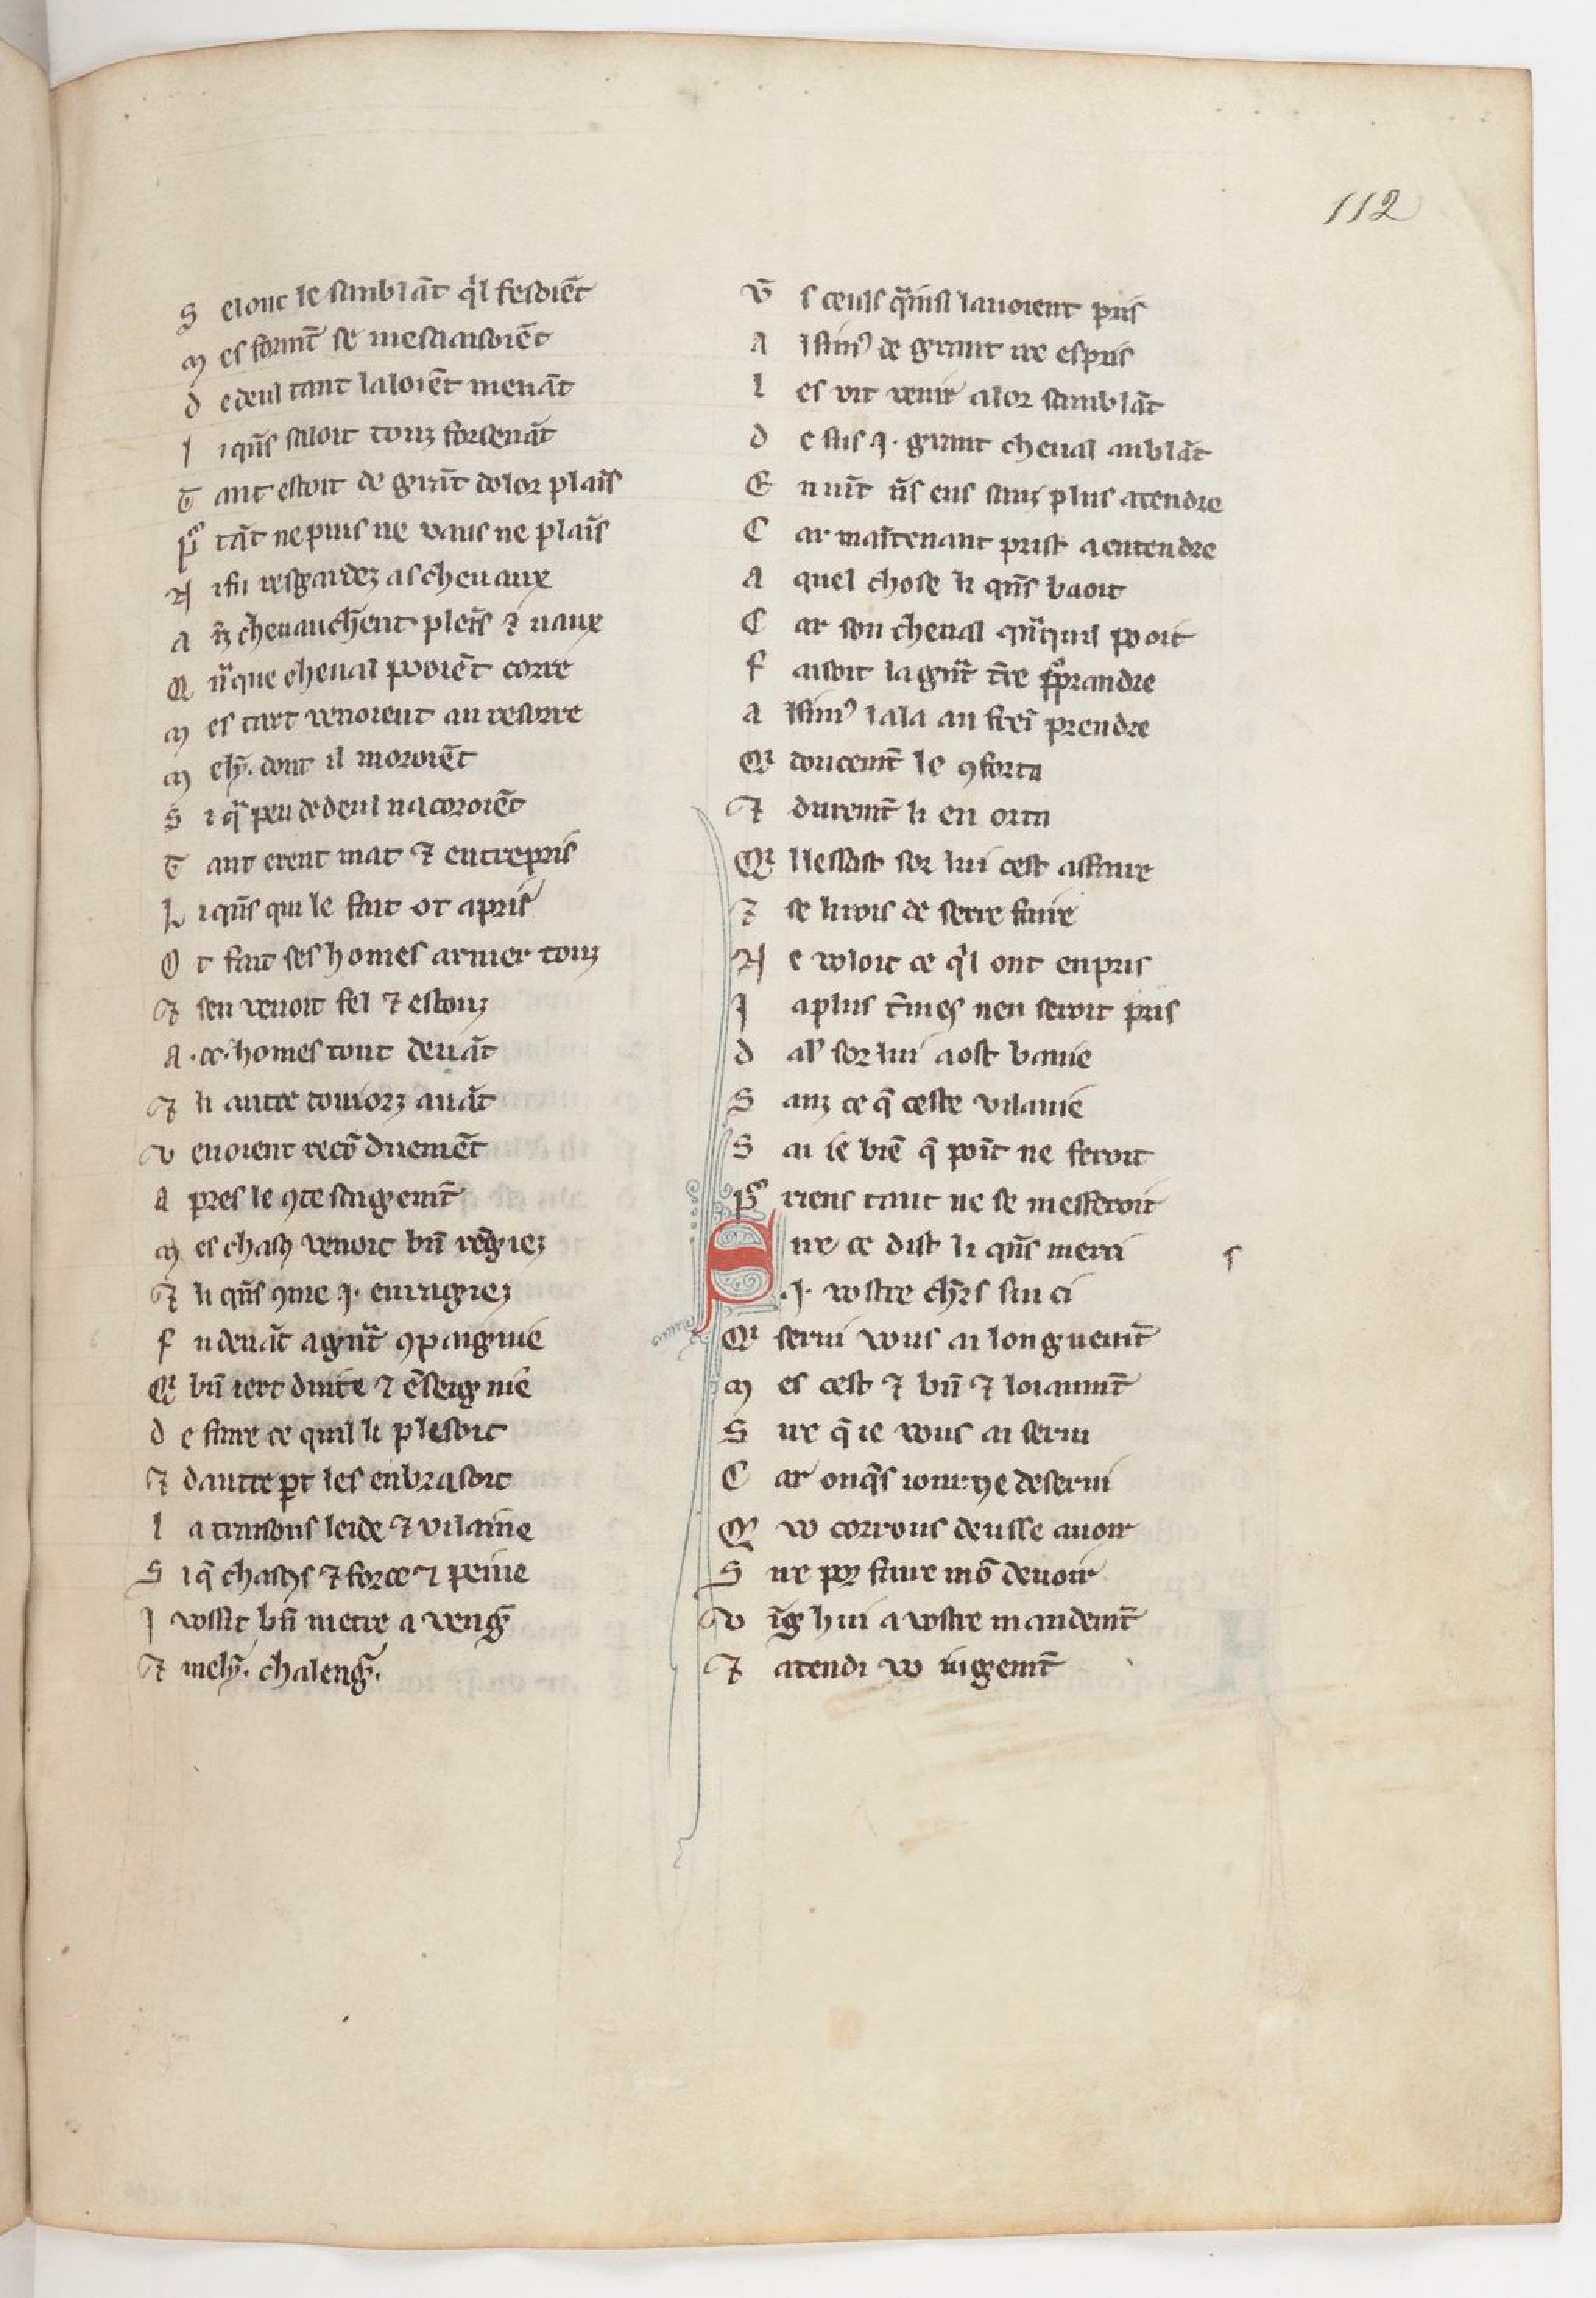 112
S elonc le samblāt q̉l fesoiēt
M es formt̄ se mesaaisoiēt
D e deul tant laloiēt menāt
L i qn̄s saloit touz forsenāt
T ant estoit de grāt dolor plaīs
P tāt ne puis ne vaus ne plaīs
N i fu resgardez as cheuaux
A nz cheuauchēnt pleīs ⁊ uaux
Q nque cheual pooiēt corre
M es tart venoient au resorre
M ely̾. dont il moroiēt
S i q̄ peu de deul na coroiēt
T ant erent mat ⁊ entrepris
L i qn̄s qui le fait ot apris
O t fait ses homes armer touz
⁊ sen venoit fel ⁊ estouz
A .cc. homes tout deuāt
⁊ li autre touiorz auāt
V enoient recō duemēt
A pres le ꝯte sagemt̄
M es chasꝯ venoit bn̄ rēgiez
⁊ li qn̄s ꝯme .I. enragiez
F u deuāt a gn̄t ꝯpaignie
Q bn̄ iert duite ⁊ ēseignie
D e faire ce quil li plesoit
⁊ dautre ꝑt les enbrasoit
L a traisons leide ⁊ vilaine
S i q̄ chasꝯs ⁊ force ⁊ peine
I vossit bn̄ metre a venḡ
⁊ mely̾. chalenḡ.
V̄ s ceuls q̄insi lauoient pris
A lsimꝰ de grant ire espris
L es vit venir a lor samblāt
D e sus .I. grant cheual anblāt
E n uīt v̄s eus sanz plus atendre
C ar maītenant prist a entendre
A quel chose li qn̄s baoit
C ar son cheual qn̄quil pooit
F aisoit la gn̄t t̄re porprandre
A lsimꝰ lala au freī prendre
Q doucemt̄ le ꝯforta
⁊ duremt̄ li en orta
Q llessast sor lui cest affaire
⁊ se li rois de serre faire
N e voloit ce q̉l ont enpris
I a plus t̄mes nen seroit pris
D al' sor lui a ost banie
S anz ce q̄ ceste vilanie
S ai ie biē q̄ poīt ne feroit
P riens tant ne se mesferoit
S ire ce dist li qn̄s merci
.I. vostre ch̄rs sui ci
Q serui vous ai longuemt̄
M es cest ⁊ bn̄ ⁊ loiaumt̄
S ire q̄ ie vous ai serui
C ar onq̄s iour ne deserui
Q vo corrous deusse auoir
S ire por faire mō deuoir
V īg hui a vostre mandemt̄
⁊ atendi vo iugemt̄